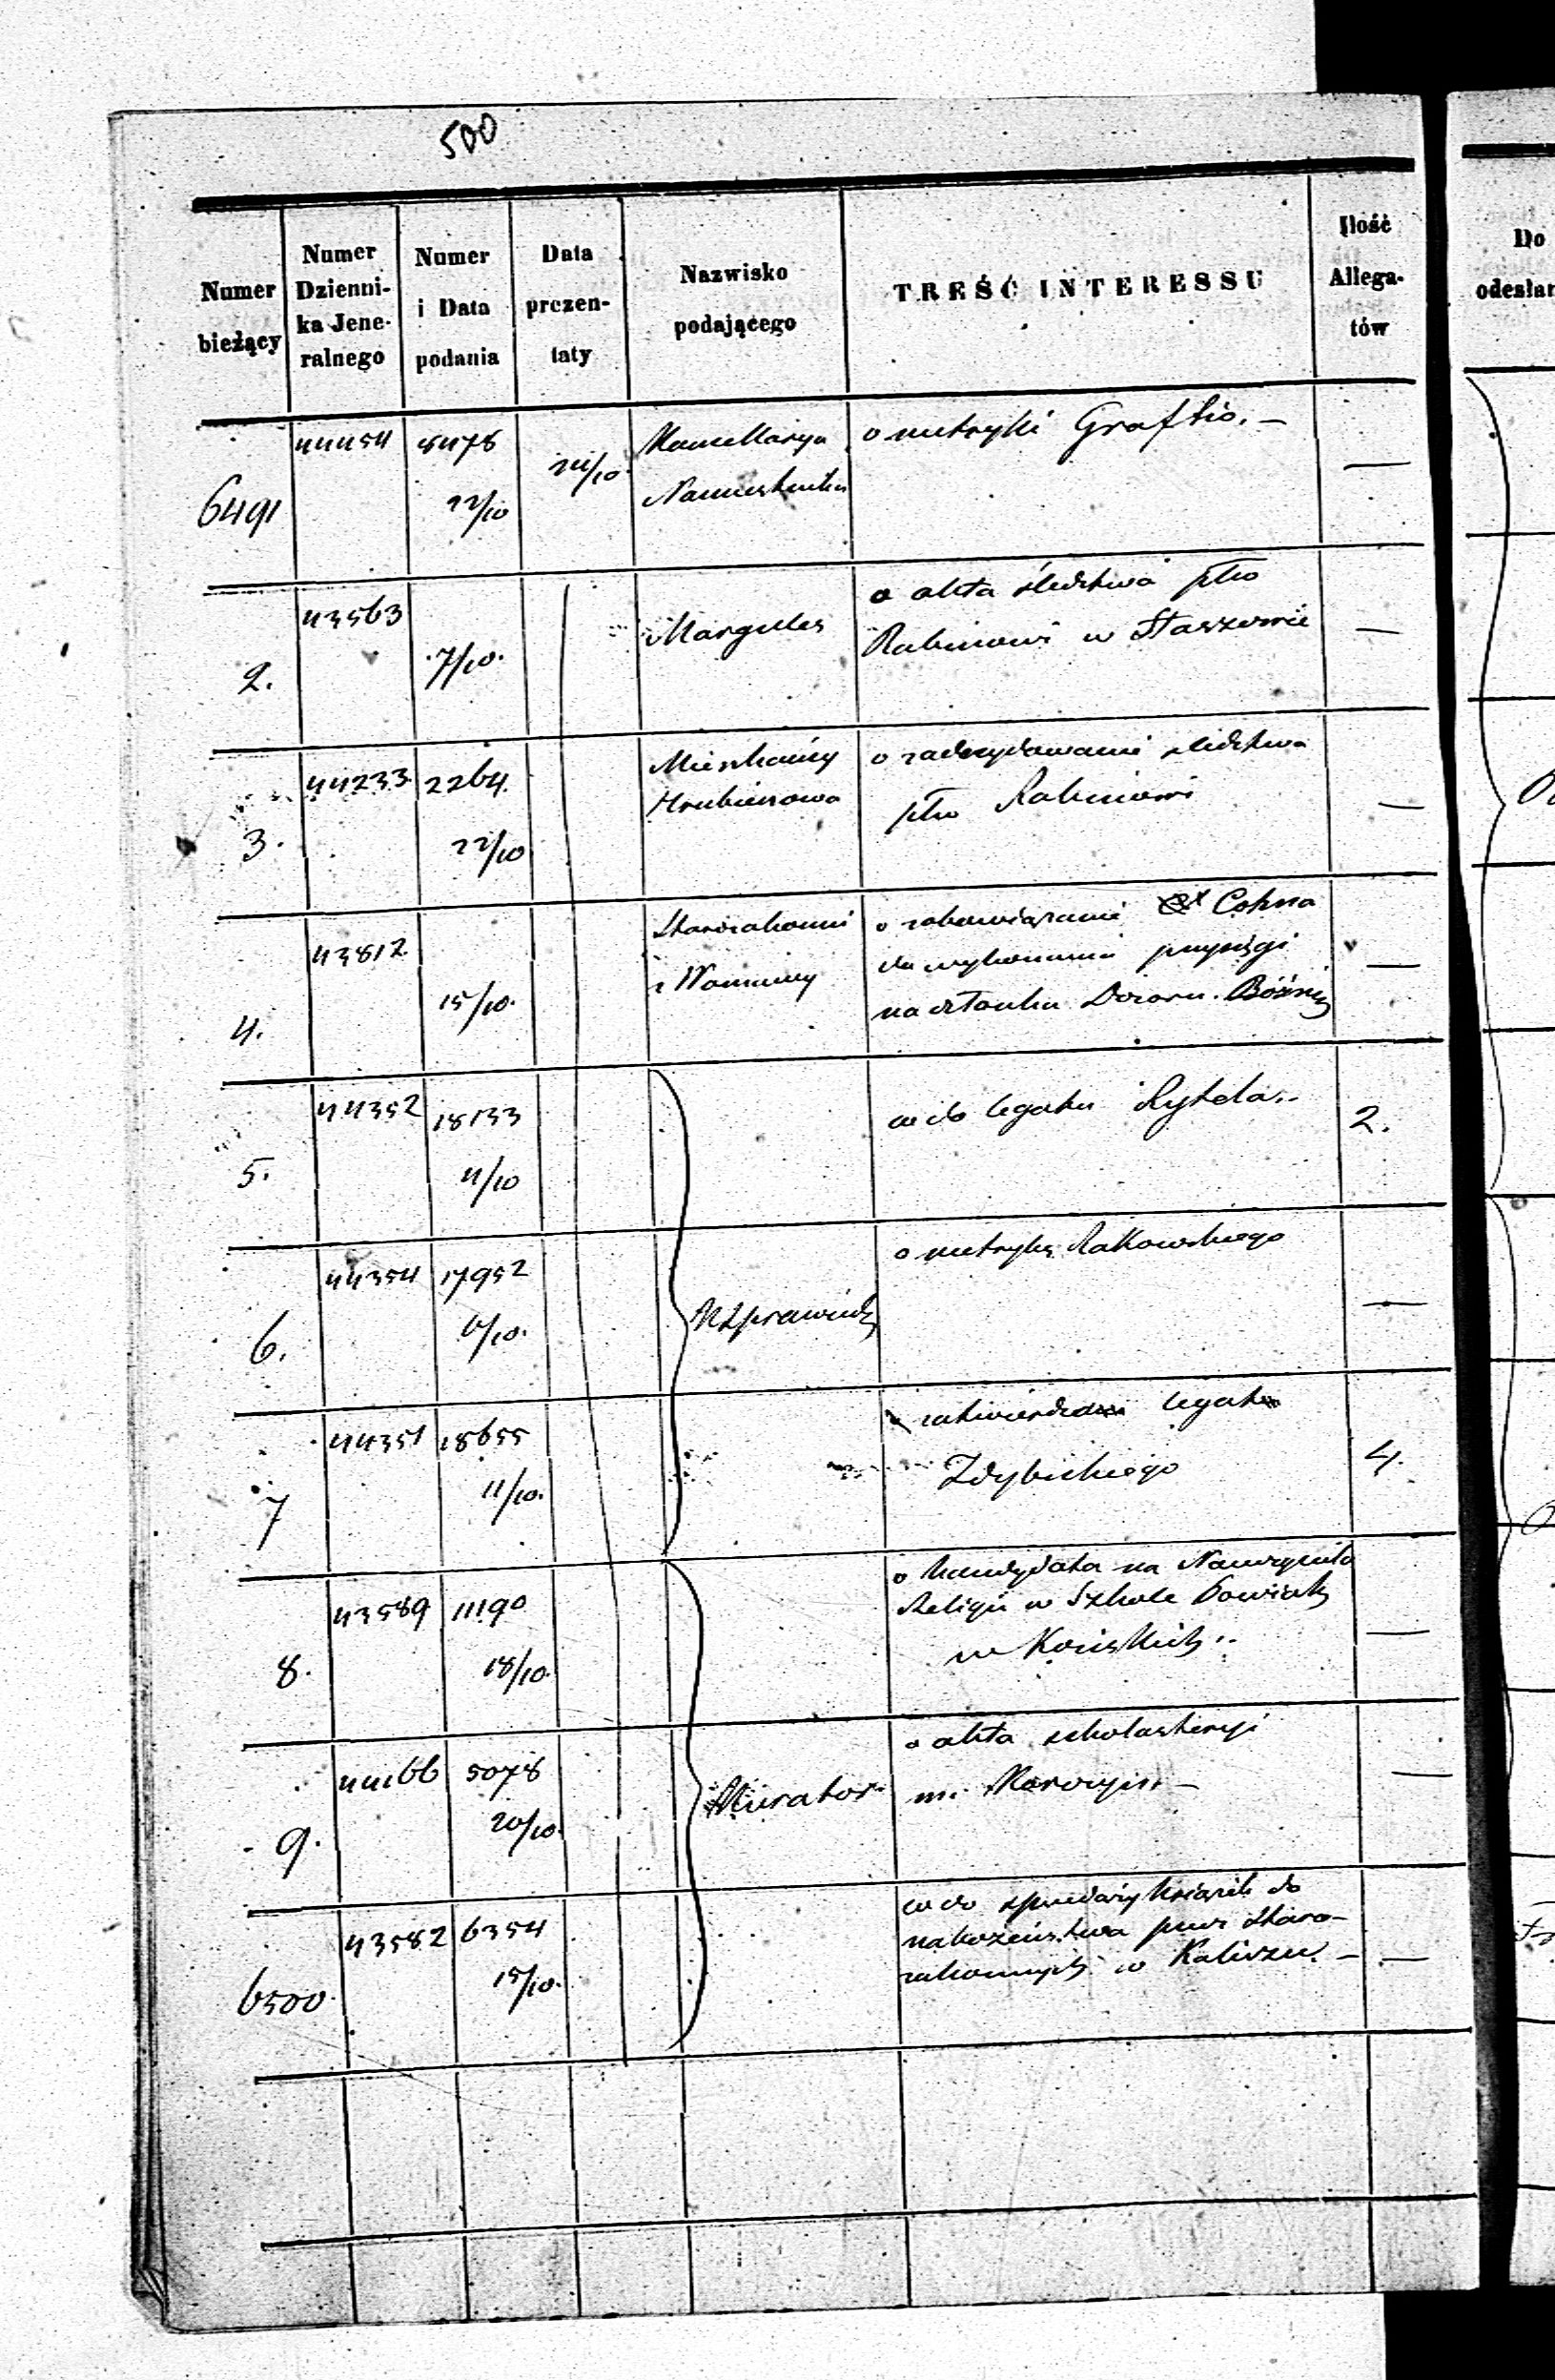 500
Numer bieżący
Numer Dzienni- ka Jene- ralnego
Numer i Data podania
Data prezen- taty
Nazwisko podającego
TREŚĆ INTERESSU
Ilość Allega- tów
Do odesłan
6491 44454 8478 22/10 24/10
Kancellarya
Namiestnika
o metryki Graftio. —
2. 43563 7/10.
Margules
o akta śledztwa pko
Rabinowi w Staszowie —
3. 44233 2264. 22/10
Mieszkańcy
Hrubieszowa
o zadecydowanie śledztwa
pko Rabinowi —
4. 43812 15/10.
Starozakonni
z Warszawy
o zobowiązanie Cohna
do wykonania przysięgi
na członka Dozoru Bóżnicz —
5. 44352 18133 11/10
co do legatu Rytela 2.
6. 44354 17952 10/10.
KSprawiedl
o metrykę Rakowskiego —
7 44351 18655 11/10.
zatwierdzenie legatu
Zdybickiego 4.
8. 43589 11190 18/10.
o kandydata na Nauczyciela
Religii w Szkole Powiat
w Końskich —
9. 44166 5078 20/10.
Kurator
o akta scholasteryi
—
6500. 43582 6354 15/10.
co do sprzedaży książek do
nabożeństwa przez Staro-
zakonnych w Kaliszu. — —